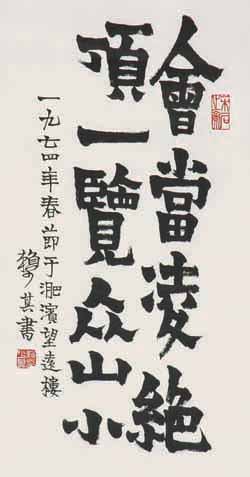 會當凌絶
頂一覽众山小
一九七四年春節于淝濱望遠樓
賴少其書